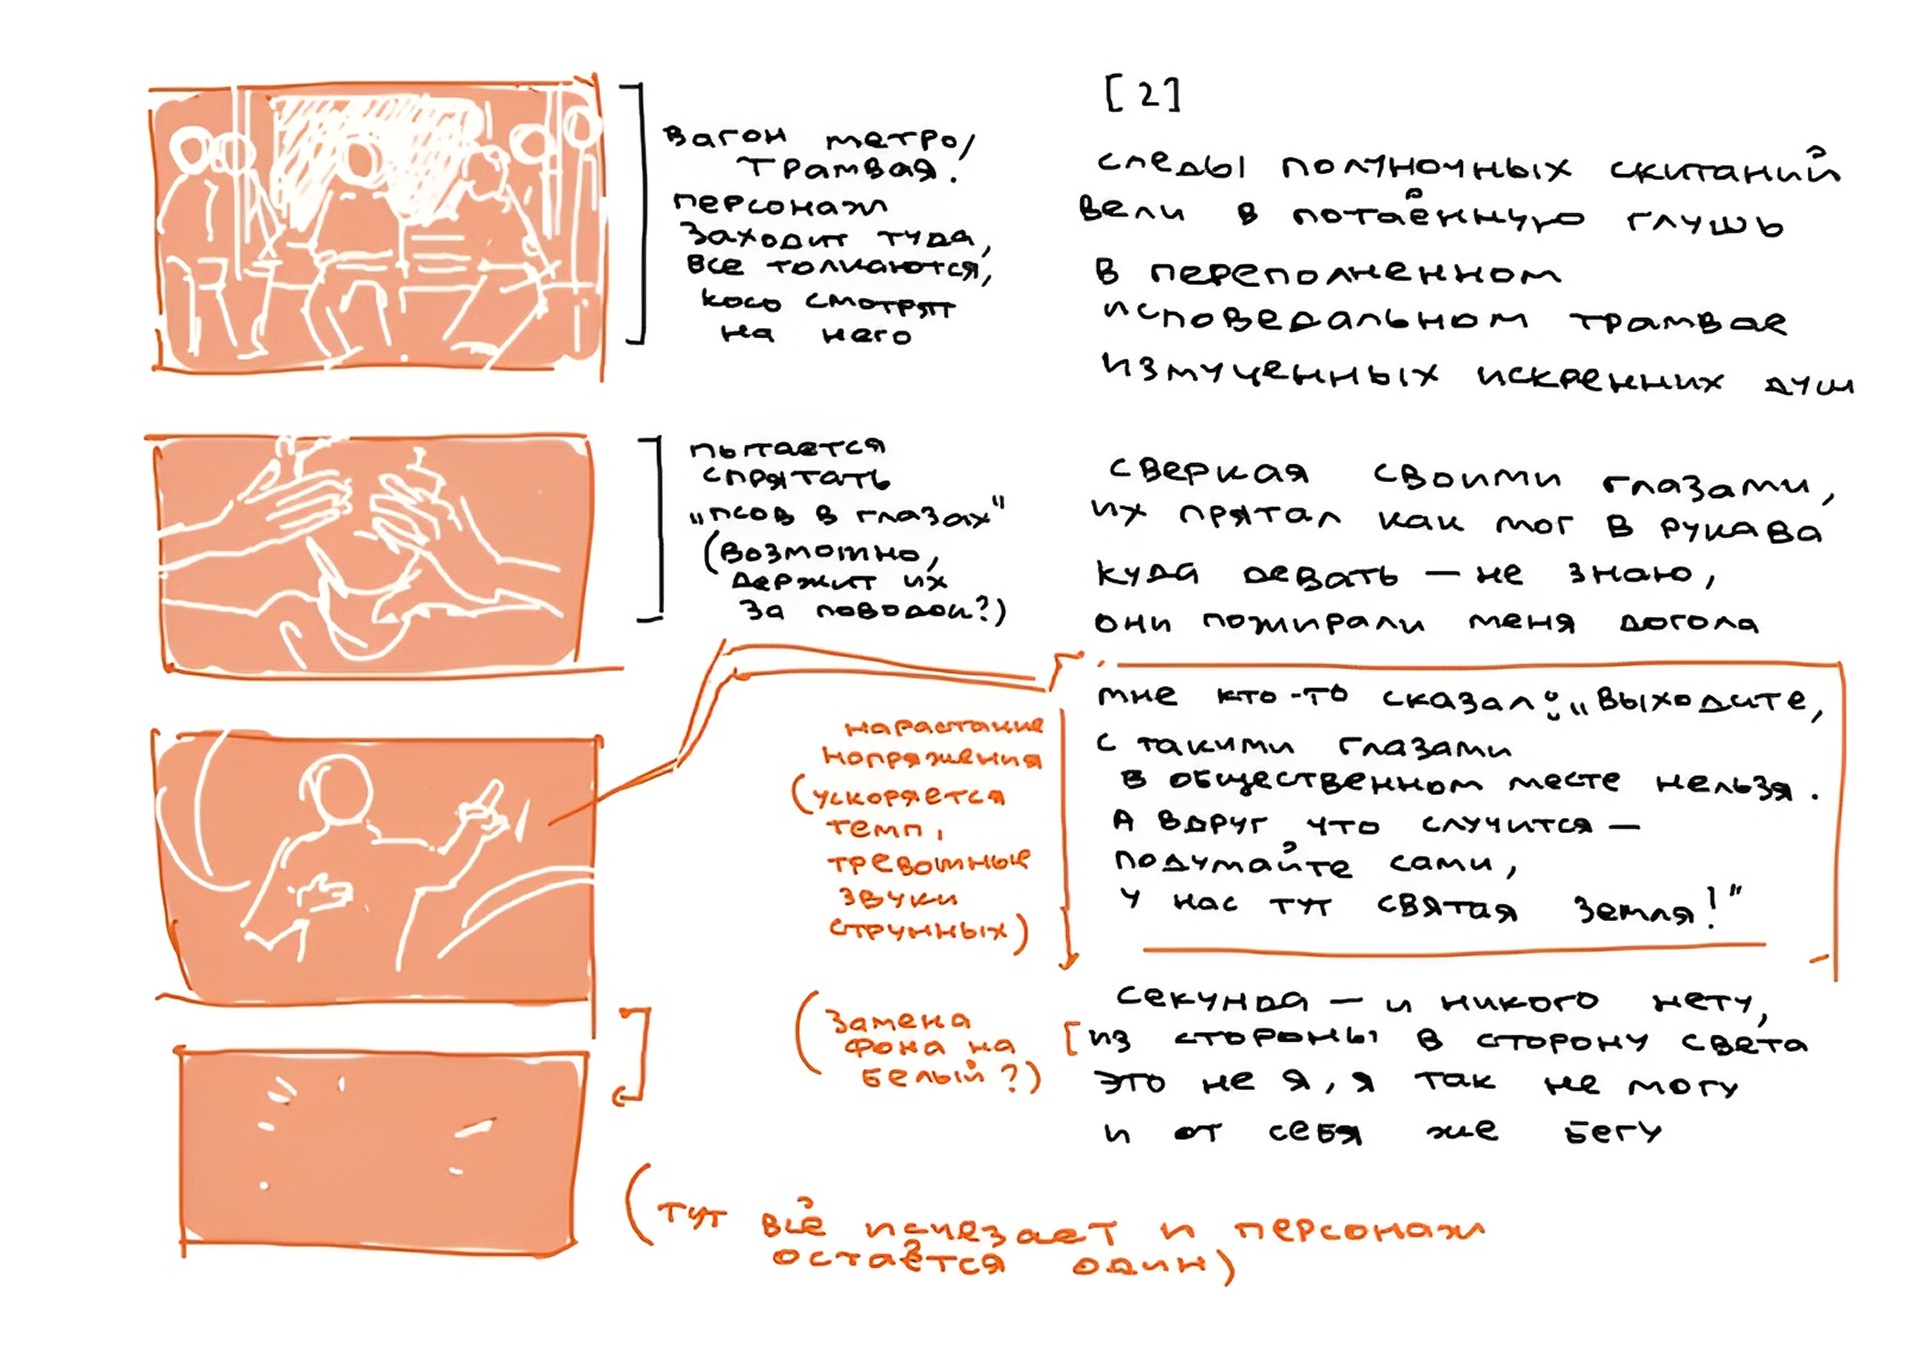 вагон метро/
трамвая.
персонаж
заходит туда,
все толкаются,
косо смотрят
на него
пытается
спрятать
„псов в глазах"
(возможно,
держит их
за поводок?)
нарастание
напряжения
(ускоряется
темп,
тревожные
звуки
струнных)
(замена
фона на
белый?)
(тут всё исчезает и персонаж
остаётся один)
[2]
следы полуночных скитаний
вели в потаённую глушь
в переполненном
исповедальном трамвае
измученных искренних душ
сверкая своими глазами,
их прятал как мог в рукава
куда девать — не знаю,
они пожирали меня догола
мне кто-то сказал: „выходите,
с такими глазами
в общественном месте нельзя.
А вдруг что случится —
подумайте сами,
у нас тут святая земля!"
секунда — и никого нету,
[из стороны в сторону света
это не я, я так не могу
и от себя же бегу